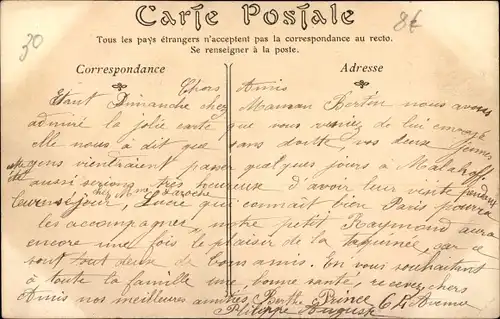 30
Carte Postale
8€
Tous les pays étrangers n'acceptent pas la correspondance au recto.
Se renseigner à la poste.
Correspondance
Adresse
Chers Amis
Etant Dimanche chez Maman Bertin nous avons
admiré la jolie carte que vous veniez de lui envoyé
elle nous a dit que sans doutte, vos deux jeunes
gens viendraient passer quelques jours à Malakoff
aussi serions très heureux d'avoir leur visite pendant
chez Mme Laroche
leur séjour, Lucie qui connaît bien Paris pourra
les accompagner, notre petit Raymond aura
encore une fois le plaisir de la taquinée, car ce
sont tout deux de bons amis. En vous souhaitant
à toute la famille une bonne santé, recevez chers
Amis nos meilleures amitiés, Berthe Prince
Philippe Auguste Avenue